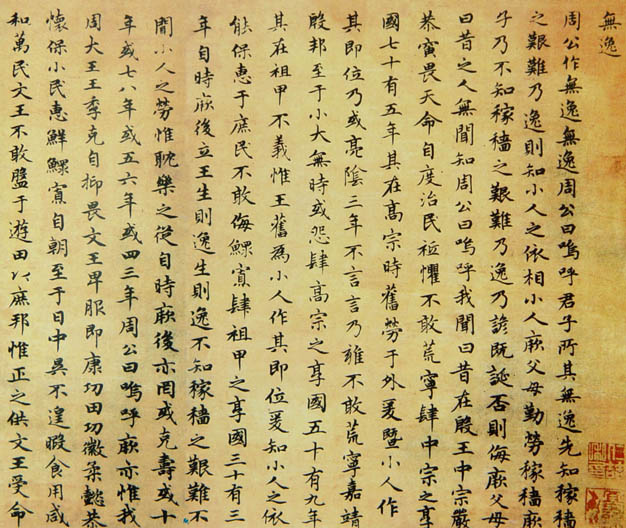 無逸
周公作無逸無逸周公曰嗚呼君子所其無逸先知稼穡
之艱難乃逸則知小人之依相小人厥父母勤勞稼穡厥
子乃不知稼穡之艱難乃逸乃諺既誕否則侮厥父母
曰昔之人無聞知周公曰嗚呼我聞曰昔在殷王中宗嚴
恭寅畏天命自度治民祗懼不敢荒寧肆中宗之享
國七十有五年其在高宗時舊勞于外爰暨小人作
其即位乃或亮陰三年不言言乃雍不敢荒寧嘉靖
殷邦至于小大無時或怨肆高宗之享國五十有九年
其在祖甲不義惟王舊為小人作其即位爰知小人之依
能保惠于庶民不敢侮鰥寡肆祖甲之享國三十有三
年自時厥後立王生則逸生則逸不知稼穡之艱難不
聞小人之勞惟耽樂之從自時厥後亦罔或克壽或十
年或七八年或五六年或四三年周公曰嗚呼厥亦惟我
周大王王季克自抑畏文王卑服即康功田功徽柔懿恭
懷保小民惠鮮鰥寡自朝至于日中昃不遑暇食用咸
和萬民文王不敢盤于遊田以庶邦惟正之供文王受命